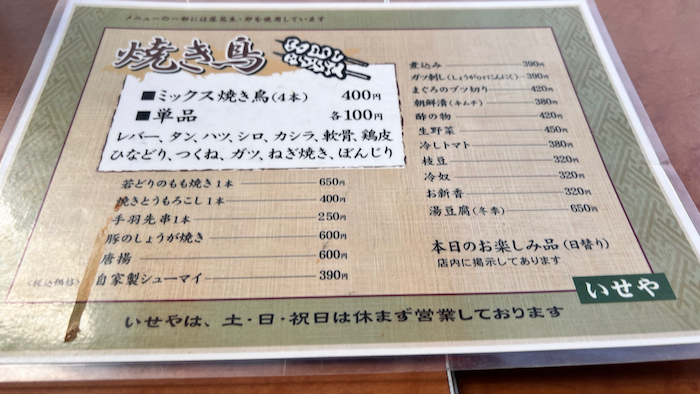 メニューの一部には落花生・卵を使用しています
焼き鳥
■ミックス焼き鳥(4本) 400円
■単品 各100円
レバー、タン、ハツ、シロ、カシラ、軟骨、鶏皮
ひなどり、つくね、ガツ、ねぎ焼き、ぼんじり
若どりのもも焼き1本 650円
焼きとうもろこし1本 400円
手羽先串1本 250円
豚のしょうが焼き 600円
唐揚 600円
自家製シューマイ 390円
<税込価格>
煮込み 390円
ガツ刺し(しょうがorにんにく) 390円
まぐろのブツ切り 420円
朝鮮漬(キムチ) 380円
酢の物 420円
生野菜 450円
冷しトマト 380円
枝豆 320円
冷奴 320円
お新香 320円
湯豆腐(冬季) 650円
本日のお楽しみ品(日替り)
店内に掲示してあります
いせや
いせやは、土・日・祝日は休まず営業しております